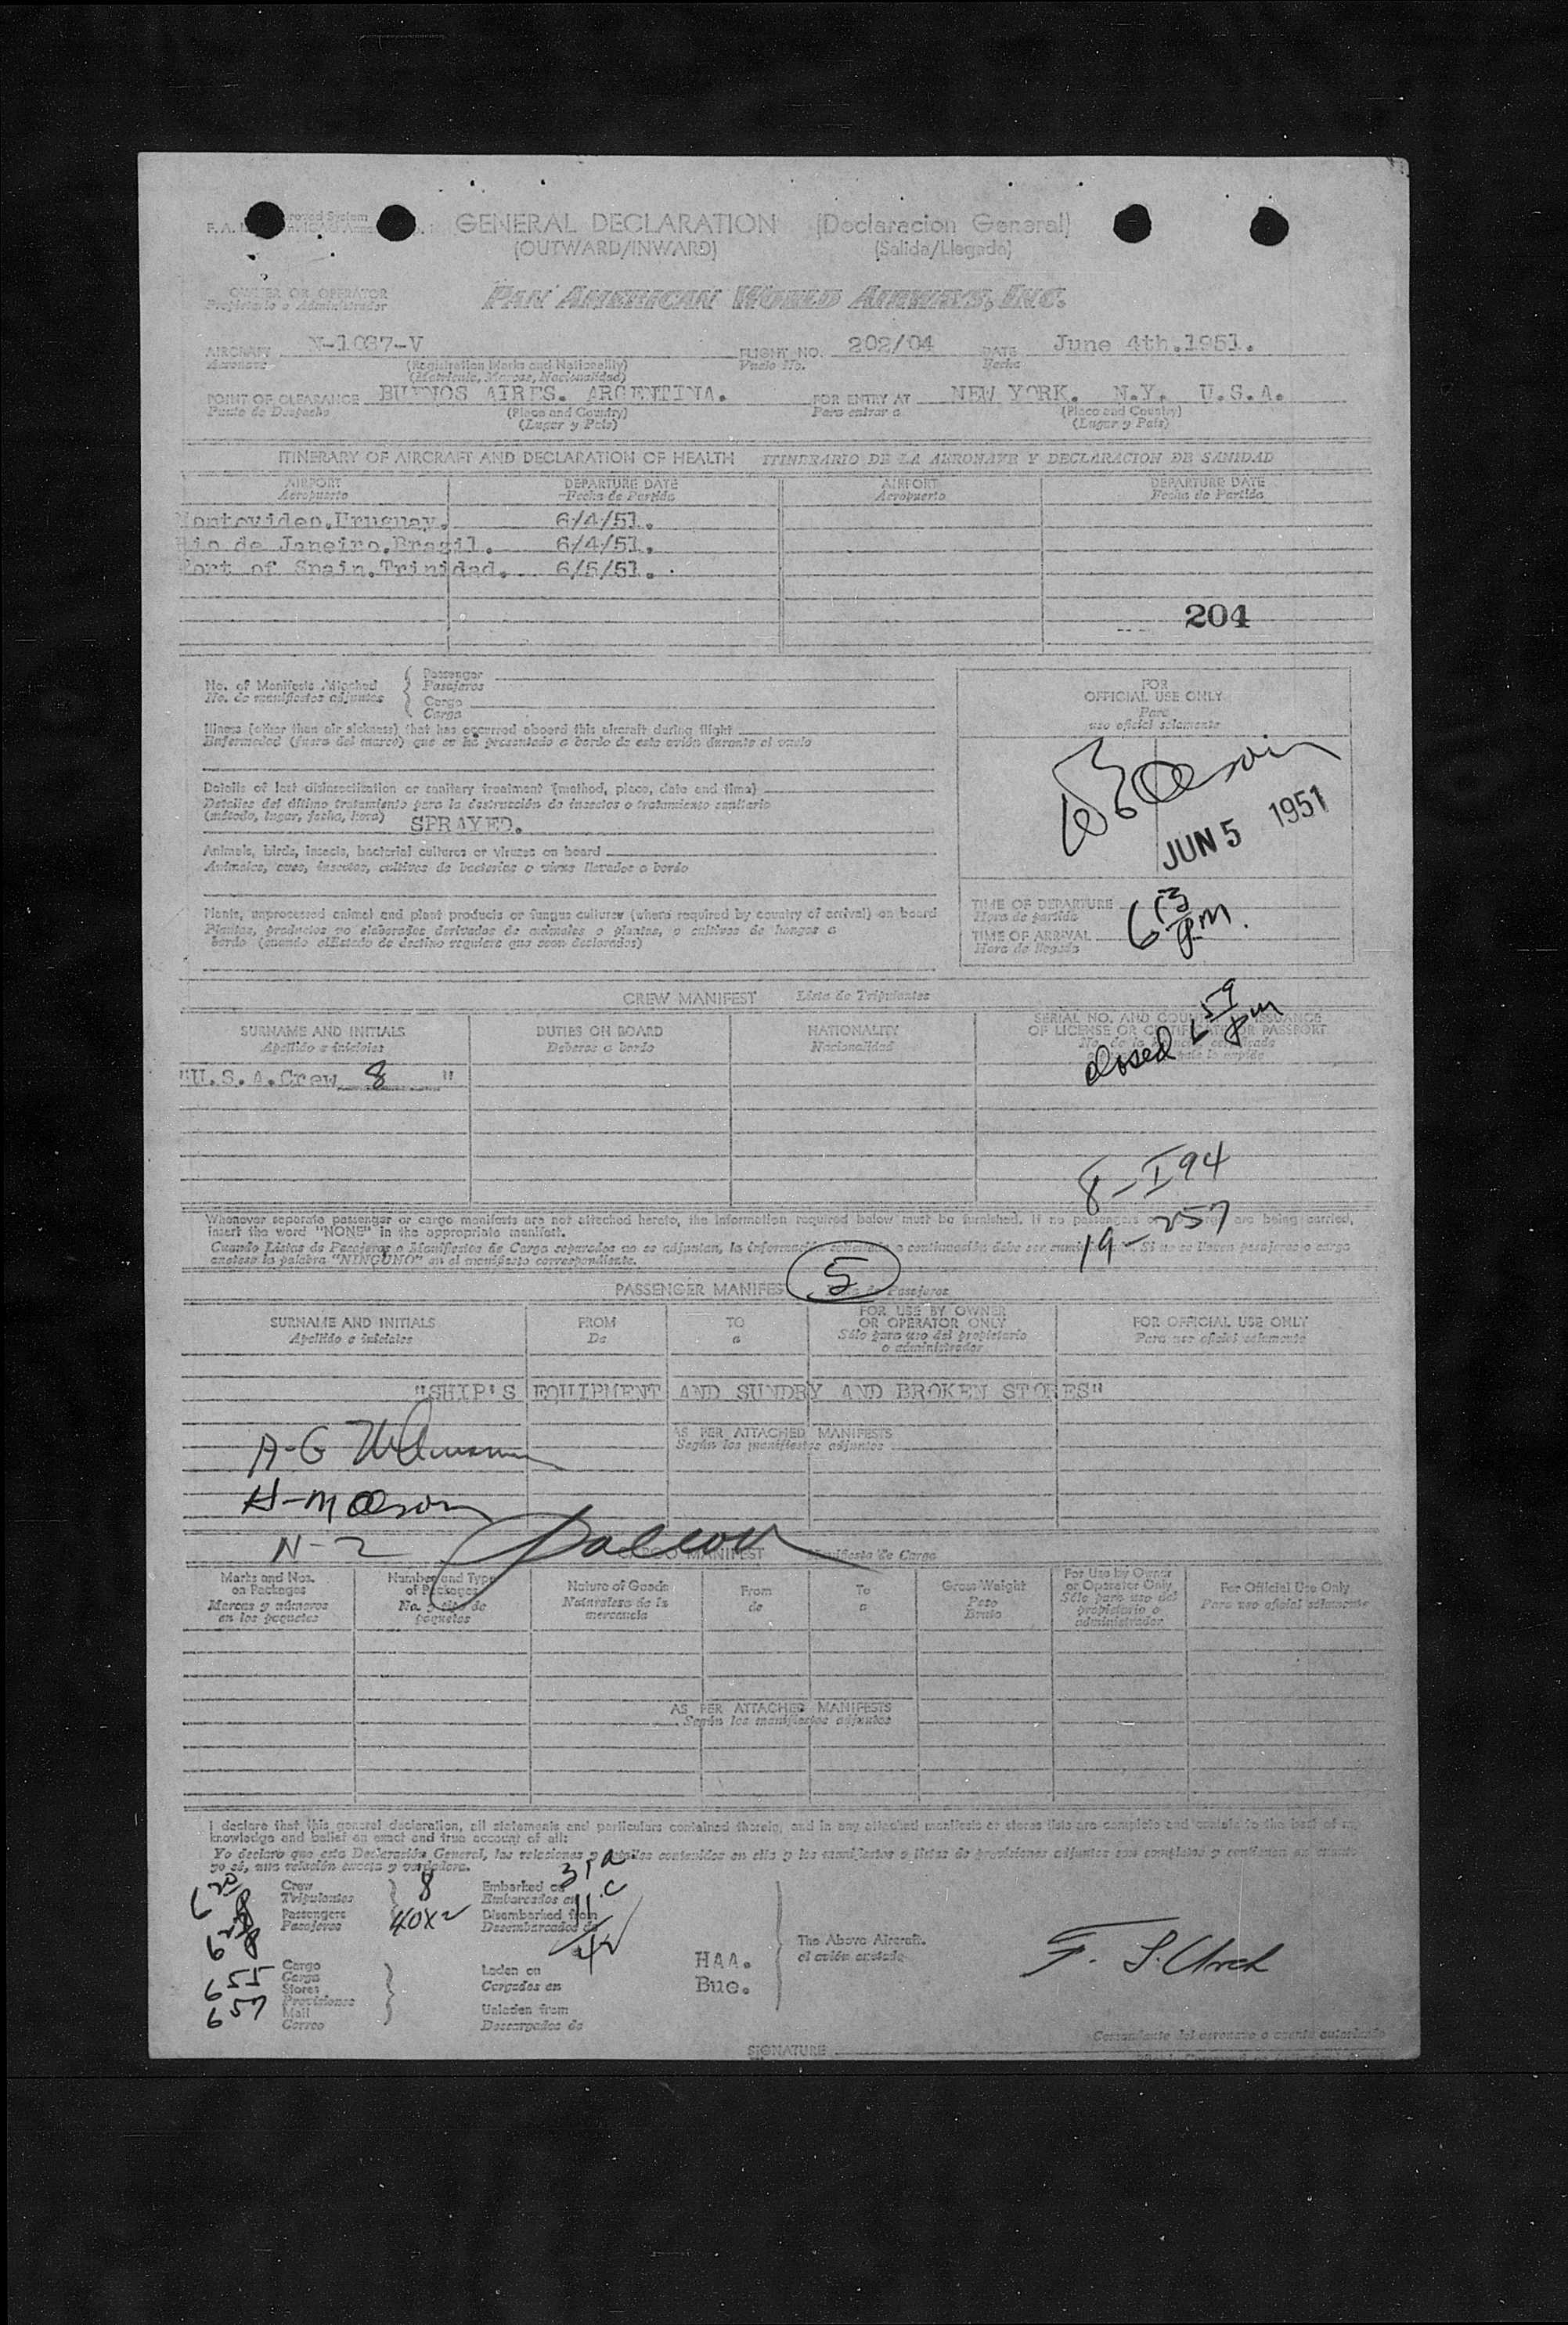 GENERAL DECLARATION (Declaracion General)
(OUTWARD/INWARD) (Salida/Llegada)
OWNER OR OPERATOR
Propietario o Administrador
PAN AMERICAN WORLD AIRWAYS, INC.
AIRCRAFT N-1037-V FLIGHT NO. 202/04 DATE June 4th.1951.
Aeronave (Registration Marks and Nationality) Vuelo No. Fecha
(Matricula, Marcas, Nacionalidad)
POINT OF CLEARANCE BUENOS AIRES. ARGENTINA. FOR ENTRY AT NEW YORK. N.Y. U.S.A.
Punto de Despacho (Place and Country) Para entrar a (Place and Country)
(Lugar y País) (Lugar y País)
ITINERARY OF AIRCRAFT AND DECLARATION OF HEALTH ITINERARIO DE LA AERONAVE Y DECLARACION DE SANIDAD
AIRPORT DEPARTURE DATE AIRPORT DEPARTURE DATE
Aeropuerto Fecha de Partida Aeropuerto Fecha de Partida
Montevideo.Uruguay. 6/4/51.
Rio de Janeiro.Brazil. 6/4/51.
Port of Spain.Trinidad. 6/5/51.
204
No. of Manifests Attached Passenger
No. de manifiestos adjuntos Pasajeros
Cargo
Carga
FOR
OFFICIAL USE ONLY
Para
uso oficial solamente
Illness (other than air sickness) that has occurred aboard this aircraft during flight
Enfermedad (fuera del mareo) que se ha presentado a bordo de este avión durante el vuelo
Details of last disinsectization or sanitary treatment (method, place, date and time)
Detalles del último tratamiento para la destrucción de insectos o tratamiento sanitario
(método, lugar, fecha, hora) SPRAYED.
JUN 5 1951
Animals, birds, insects, bacterial cultures or viruses on board
Animales, aves, insectos, cultivos de bacterias o virus llevados a bordo
TIME OF DEPARTURE
Hora de partida
TIME OF ARRIVAL 6 13 pm.
Hora de llegada
Plants, unprocessed animal and plant products or fungus cultures (where required by country of arrival) on board
Plantas, productos no elaborados derivados de animales o plantas, o cultivos de hongos a
bordo (cuando el Estado de destino requiere que sean declarados)
CREW MANIFEST Lista de Tripulantes
closed 6 59 pm
SURNAME AND INITIALS DUTIES ON BOARD NATIONALITY SERIAL NO. AND ISSUANCE
OF LICENSE OR CERTIFICATE OR PASSPORT
Apellido e iniciales Deberes a bordo Nacionalidad
"U.S.A.Crew 8 "
8 - I 94
19 - 257
Whenever separate passenger or cargo manifests are not attached hereto, the information required below must be furnished. If no passengers or cargo are being carried,
insert the word "NONE" in the appropriate manifest.
Cuando Listas de Pasajeros o Manifiestos de Carga separados no se adjuntan, la información solicitada a continuación debe ser suministrada. Si no se llevan pasajeros o carga
anótese la palabra "NINGUNO" en el manifiesto correspondiente.
5
PASSENGER MANIFEST de Pasajeros
SURNAME AND INITIALS FROM TO FOR USE BY OWNER OR OPERATOR ONLY FOR OFFICIAL USE ONLY
Apellido e iniciales De a Sólo para uso del propietario o administrador Para uso oficial solamente
"SHIP'S EQUIPMENT AND SUNDRY AND BROKEN STORES"
AS PER ATTACHED MANIFESTS
Según los manifiestos adjuntos
A-G
H-M
N-Z
CARGO MANIFEST Manifiesto de Carga
Marks and Nos. on Packages Number and Type of Packages Nature of Goods From To Gross Weight For Use by Owner or Operator Only For Official Use Only
Marcas y números en los paquetes No. y tipo de paquetes Naturaleza de la mercancia de a Peso Bruto Sólo para uso del propietario o administrador Para uso oficial solamente
AS PER ATTACHED MANIFESTS
Según los manifiestos adjuntos
I declare that this general declaration, all statements and particulars contained therein, and in any attached manifest or stores lists are complete and contain to the best of my
knowledge and belief an exact and true account of all:
Yo declaro que esta Declaración General, las relaciones y detalles contenidos en ella y los manifiestos o listas de provisiones adjuntos son completos y contienen en cuanto
yo sé, una relación exacta y verdadera.
6 20 Crew 8 Embarked on 31 a
Tripulantes Embarcados en 11 c
Passengers 40x2 Disembarked from 42
Pasajeros Desembarcados de
The Above Aircraft.
el avión anotado
6 55 Cargo Laden on HAA.
Carga Cargados en Bue.
6 57 Stores
Provisiones
Mail Unladen from
Correo Descargados de
SIGNATURE
Comandante del aeronave o agente autorizado